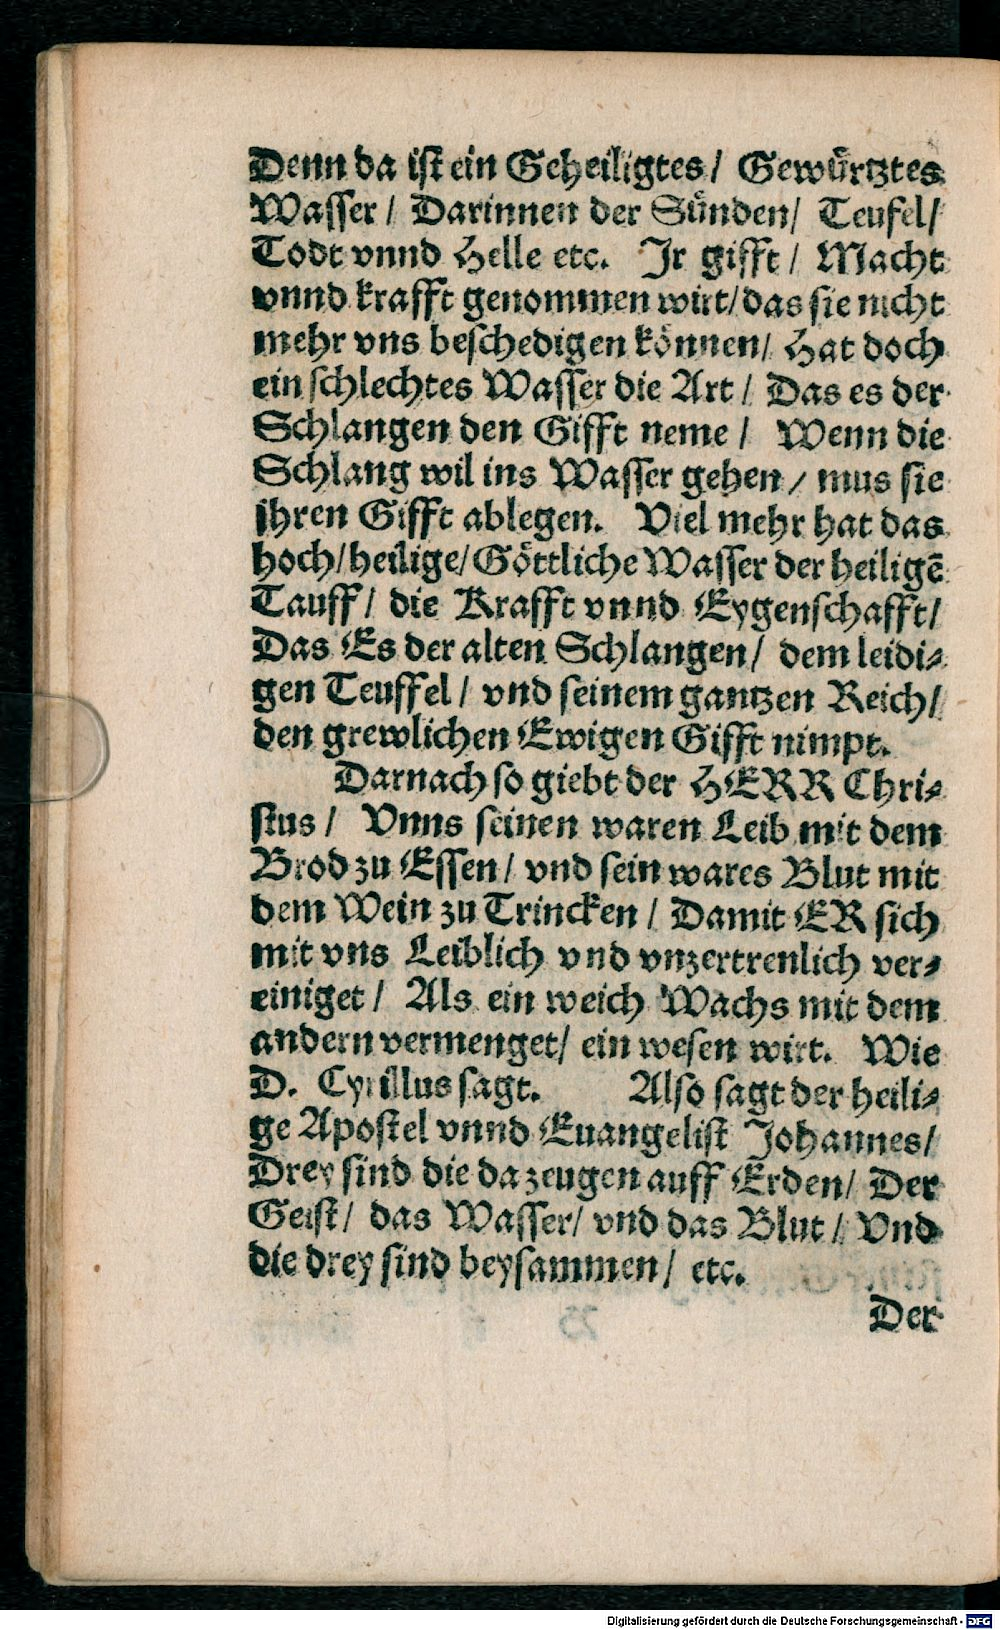 Denn da ist ein Geheiligtes/ Gewuͤrtztes
Wasser/ Darinnen der Suͤnden/ Teufel/
Todt vnnd Helle etc. Jr gifft/ Macht
vnnd krafft genommen wirt/ das sie nicht
mehr vns beschedigen koͤnnen/ Hat doch
ein schlechtes Wasser die Art/ Das es der
Schlangen den Gifft neme/ Wenn die
Schlang wil ins Wasser gehen/ mus sie
jhren Gifft ablegen. Viel mehr hat das
hoch/heilige/Goͤttliche Wasser der heiligē
Tauff/ die Krafft vnnd Eygenschafft/
Das Es der alten Schlangen/ dem leidi⸗
gen Teuffel/ vnd seinem gantzen Reich/
den grewlichen Ewigen Gifft nimpt.
Darnach so giebt der HERR Chri⸗
stus/ Vnns seinen waren Leib mit dem
Brod zu Essen/ vnd sein wares Blut mit
dem Wein zu Trincken/ Damit ER sich
mit vns Leiblich vnd vnzertrenlich ver⸗
einiget/ Als ein weich Wachs mit dem
andern vermenget/ ein wesen wirt. Wie
D. Cyrillus sagt. Also sagt der heili⸗
ge Apostel vnnd Euangelist Johannes/
Drey sind die da zeugen auff Erden/ Der
Geist/ das Wasser/ vnd das Blut/ Vnd
die drey sind beysammen/ etc.
Der
Digitalisierung gefördert durch die Deutsche Forschungsgemeinschaft - DFG